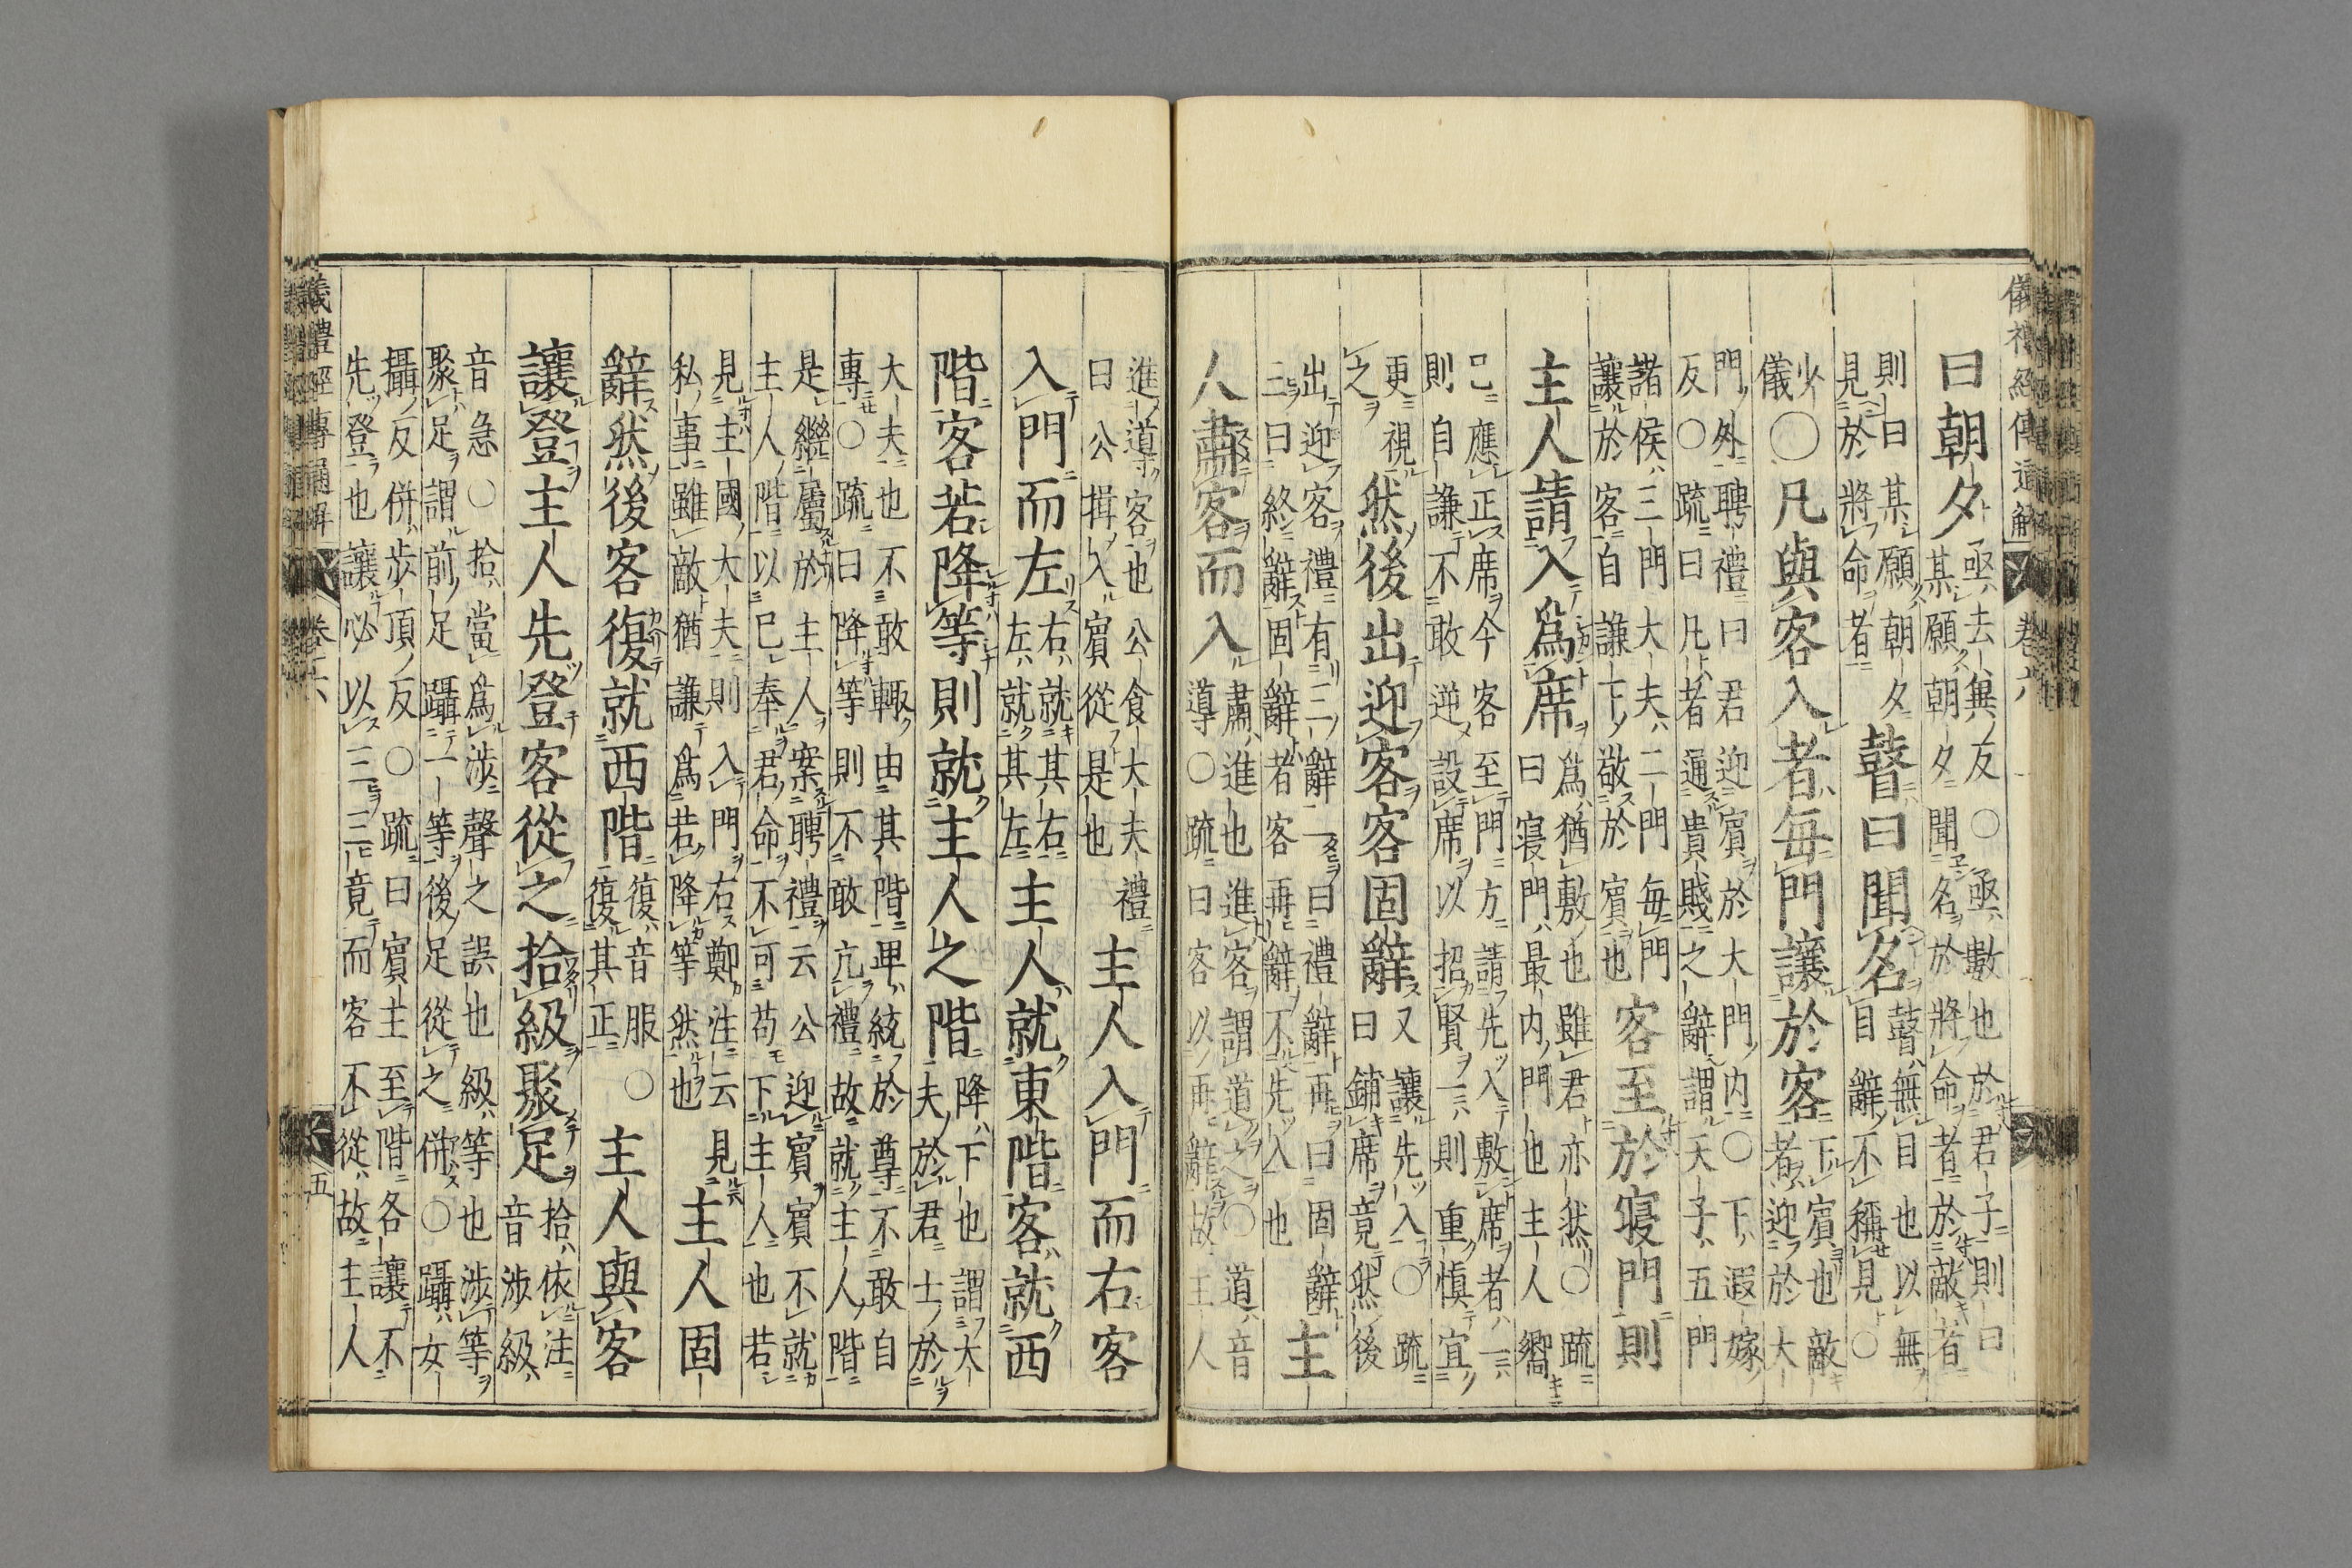 儀禮經傳通解 卷六
曰朝夕
亟去無反○亟數也於君子則曰
某願朝夕聞名於將命者於敵者
則曰某願朝夕
見於將命者
瞽曰聞名
瞽無目也以無
目辭不稱見○
少
儀
○凡與客入者每門讓於客
下賓也敵
者迎於大
門外聘禮曰君迎賓於大門内○下遐嫁
反○疏曰凡者通貴賤之辭謂天子五門
諸侯三門大夫二門每門
讓於客自謙下敬於賓也
客至於寢門則
主人請入爲席
爲猶敷也雖君亦然○疏
曰寢門最内門也主人嚮
已應正席今客至門方請先入敷席者一
則自謙不敢逆設席以招賢一則重愼宜
更視
之
然後出迎客客固辭
又讓先入○疏
曰鋪席竟然後
出迎客禮有三辭一曰禮辭再曰固辭
三曰終辭固辭者客再辭不先入也
主
人肅客而入
肅進也進客謂道之○道音
導○疏曰客以再辭故主人
進道客也公食大夫禮
曰公揖入賓從是也
主人入門而右客
入門而左
右就其右
左就其左
主人就東階客就西
階客若降等則就主人之階
降下也謂大
夫於君士於
大夫也不敢輒由其階卑統於尊不敢自
專○疏曰降等則不敢亢禮故就主人階
是繼屬於主人案聘禮云公迎賓賓不就
主人階以已奉君命不可苟下主人也若
見主國大夫則入門右鄭注云見
私事雖敵猶謙爲若降等然也
主人固
辭然後客復就西階
復音服○
復其正
主人與客
讓登主人先登客從之拾級聚足
拾依注
音涉級
音急○拾當爲涉聲之誤也級等也涉等
聚足謂前足躡一等後足從之併○躡女
攝反併步頂反○疏曰賓主至階各讓不
先登也讓必以三三竟而客不從故主人
儀禮經傳通解 卷六 五